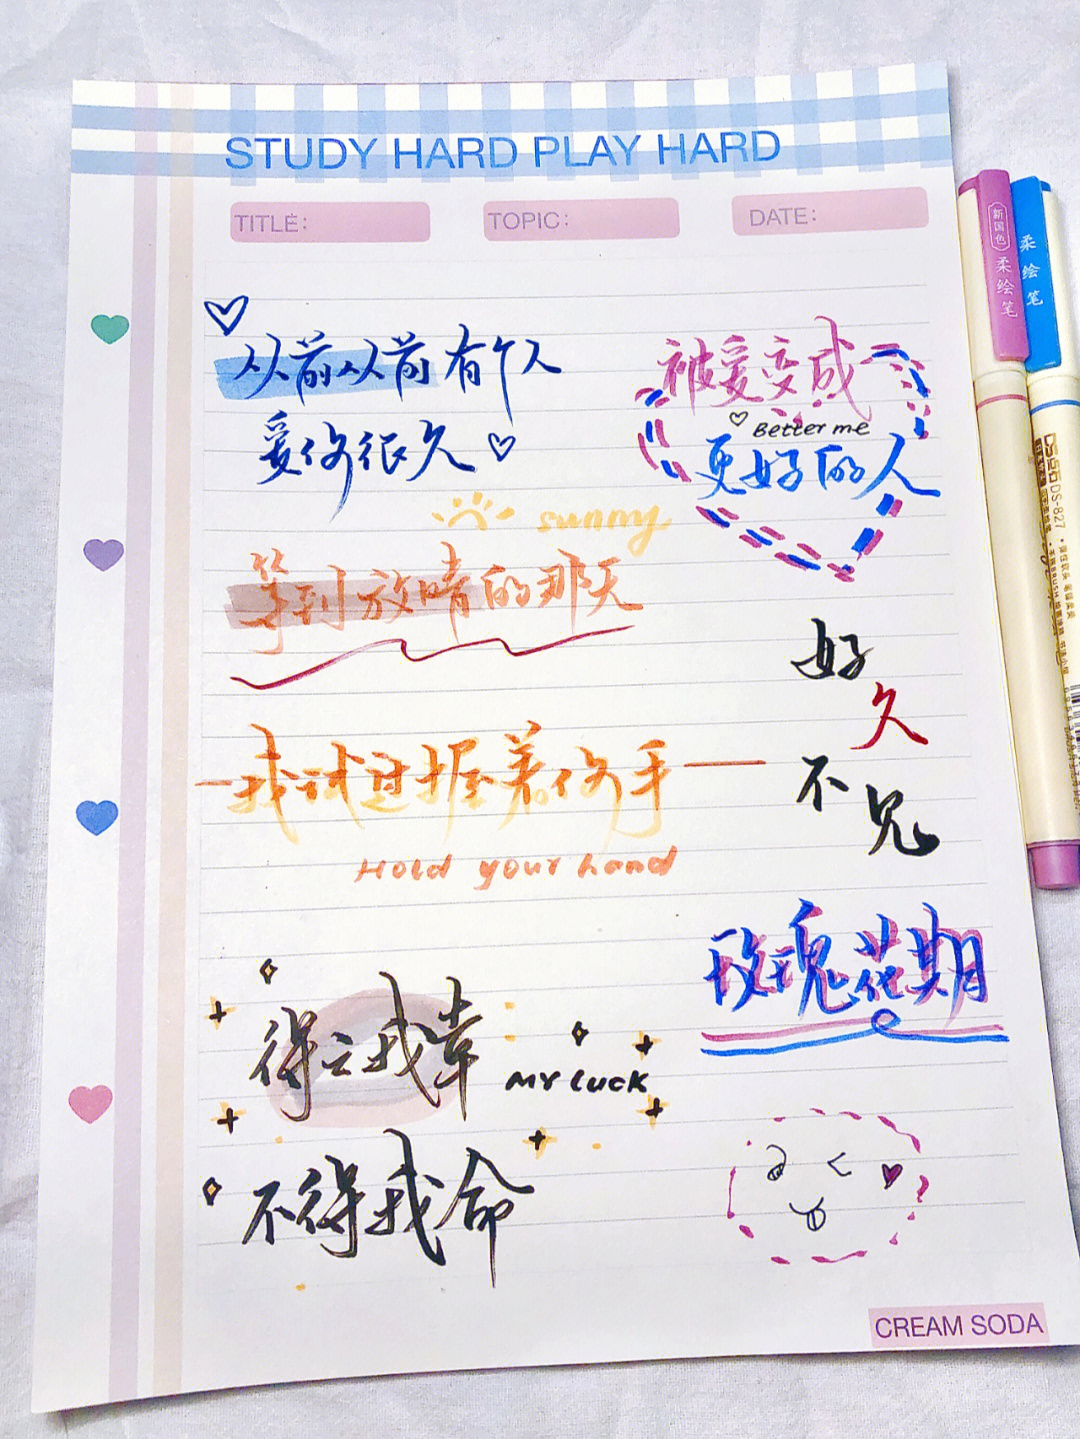 STUDY HARD PLAY HARD
TITLE:
TOPIC:
DATE:
从前从前有个人
爱你很久
被爱变成
Better me
更好的人
sunny
等到放晴的那天
好
久
不
见
我试过握着你手
Hold your hand
玫瑰花期
得之我幸
My luck
不得我命
CREAM SODA
新国色
柔绘笔
柔绘笔
DS-827